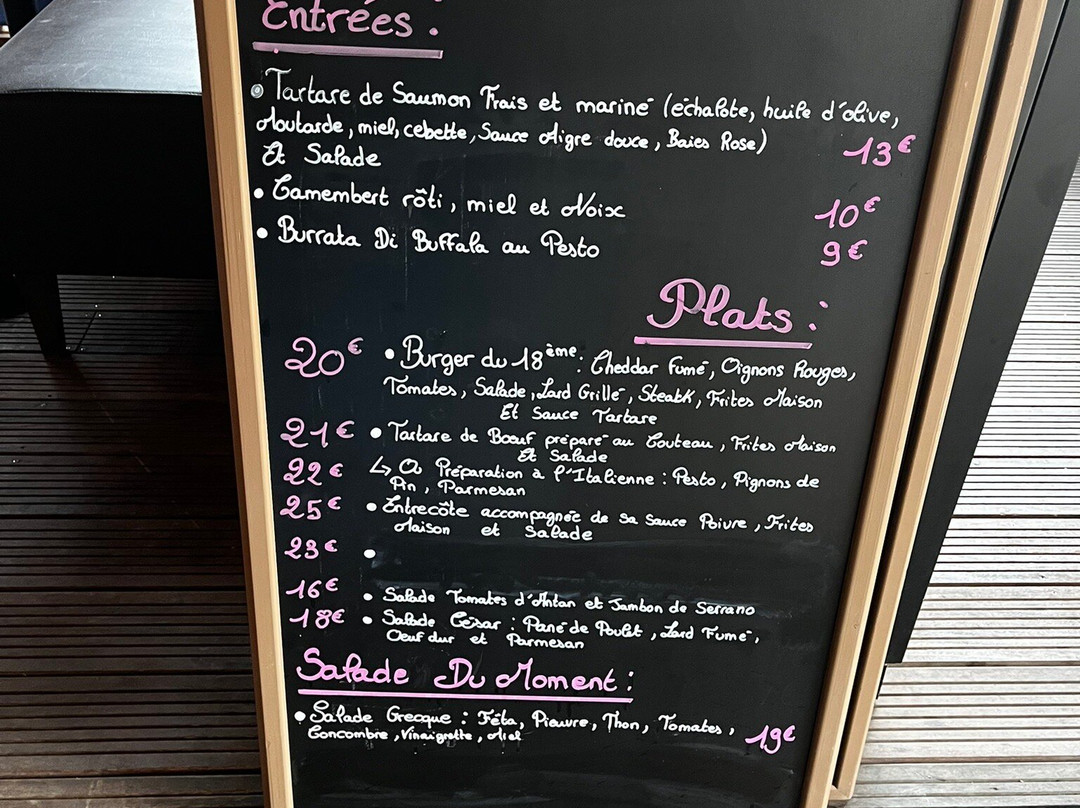 Entrées :
• Tartare de Saumon Frais et mariné (échalote, huile d'olive,
Moutarde, miel, cebette, Sauce Aigre douce, Baies Rose)
Et Salade
13€
• Camembert rôti, miel et Noix
10€
• Burrata Di Buffala au Pesto
9€
Plats :
20€ • Burger du 18ème : Cheddar Fumé, Oignons Rouges,
Tomates, Salade, Lard Grillé, Steak, Frites Maison
Et Sauce Tartare
21€ • Tartare de Bœuf préparé au Couteau, Frites Maison
Et Salade
22€ ↳ Ou Préparation à l'Italienne : Pesto, Pignons de
Pin, Parmesan
25€ • Entrecôte accompagnée de sa Sauce Poivre, Frites
Maison et Salade
23€ •
16€ • Salade Tomates d'Antan et Jambon de Serrano
18€ • Salade César : Pané de Poulet, Lard Fumé,
Oeuf dur et Parmesan
Salade Du Moment :
• Salade Grecque : Féta, Pieuvre, Thon, Tomates,
Concombre, Vinaigrette, Miel
19€